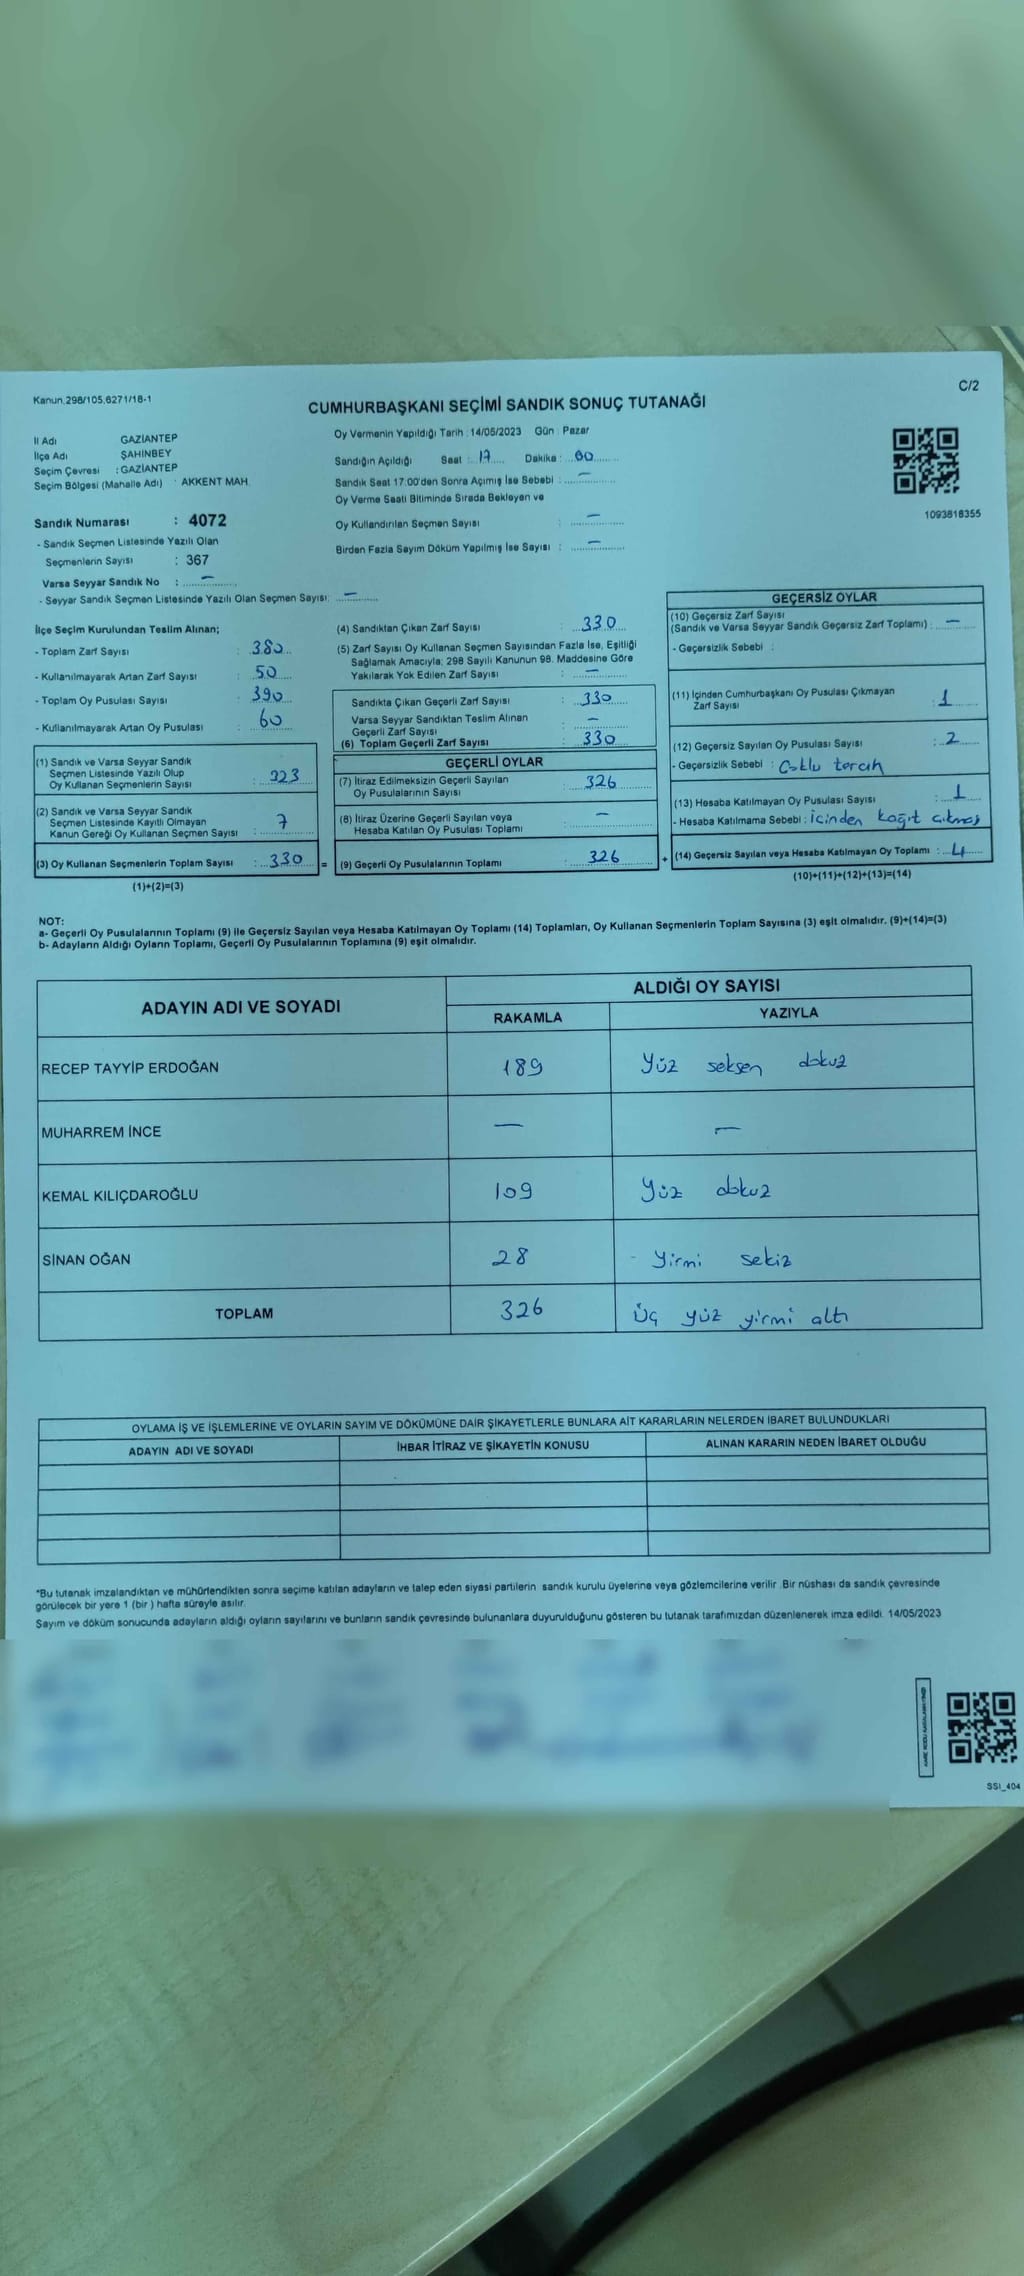 Kanun.298/105,6271/18-1
C/2
CUMHURBAŞKANI SEÇİMİ SANDIK SONUÇ TUTANAĞI
İl Adı GAZİANTEP
İlçe Adı ŞAHİNBEY
Seçim Çevresi : GAZİANTEP
Seçim Bölgesi (Mahalle Adı) : AKKENT MAH.
Sandık Numarası : 4072
- Sandık Seçmen Listesinde Yazılı Olan
Seçmenlerin Sayısı : 367
Varsa Seyyar Sandık No : —
- Seyyar Sandık Seçmen Listesinde Yazılı Olan Seçmen Sayısı: —
Oy Vermenin Yapıldığı Tarih : 14/05/2023 Gün : Pazar
Sandığın Açıldığı Saat : 17 Dakika : 00
Sandık Saat 17:00'den Sonra Açımış İse Sebebi : —
Oy Verme Saati Bitiminde Sırada Bekleyen ve
Oy Kullandırılan Seçmen Sayısı : —
Birden Fazla Sayım Döküm Yapılmış İse Sayısı : —
1093818355
İlçe Seçim Kurulundan Teslim Alınan;
- Toplam Zarf Sayısı : 380
- Kullanılmayarak Artan Zarf Sayısı : 50
- Toplam Oy Pusulası Sayısı : 390
- Kullanılmayarak Artan Oy Pusulası : 60
(1) Sandık ve Varsa Seyyar Sandık
Seçmen Listesinde Yazılı Olup
Oy Kullanan Seçmenlerin Sayısı : 323
(2) Sandık ve Varsa Seyyar Sandık
Seçmen Listesinde Kayıtlı Olmayan
Kanun Gereği Oy Kullanan Seçmen Sayısı : 7
(3) Oy Kullanan Seçmenlerin Toplam Sayısı : 330 =
(1)+(2)=(3)
(4) Sandıktan Çıkan Zarf Sayısı : 330
(5) Zarf Sayısı Oy Kullanan Seçmen Sayısından Fazla İse, Eşitliği
Sağlamak Amacıyla; 298 Sayılı Kanunun 98. Maddesine Göre
Yakılarak Yok Edilen Zarf Sayısı : —
Sandıkta Çıkan Geçerli Zarf Sayısı : 330
Varsa Seyyar Sandıktan Teslim Alınan
Geçerli Zarf Sayısı : —
(6) Toplam Geçerli Zarf Sayısı : 330
GEÇERLİ OYLAR
(7) İtiraz Edilmeksizin Geçerli Sayılan
Oy Pusulalarının Sayısı : 326
(8) İtiraz Üzerine Geçerli Sayılan veya
Hesaba Katılan Oy Pusulası Toplamı : —
(9) Geçerli Oy Pusulalarının Toplamı : 326 +
GEÇERSİZ OYLAR
(10) Geçersiz Zarf Sayısı
(Sandık ve Varsa Seyyar Sandık Geçersiz Zarf Toplamı) : —
- Geçersizlik Sebebi :
(11) İçinden Cumhurbaşkanı Oy Pusulası Çıkmayan
Zarf Sayısı : 1
(12) Geçersiz Sayılan Oy Pusulası Sayısı : 2
- Geçersizlik Sebebi : Çoklu tercih
(13) Hesaba Katılmayan Oy Pusulası Sayısı : 1
- Hesaba Katılmama Sebebi : İçinden kağıt
(14) Geçersiz Sayılan veya Hesaba Katılmayan Oy Toplamı : 4
(10)+(11)+(12)+(13)=(14)
NOT:
a- Geçerli Oy Pusulalarının Toplamı (9) ile Geçersiz Sayılan veya Hesaba Katılmayan Oy Toplamı (14) Toplamları, Oy Kullanan Seçmenlerin Toplam Sayısına (3) eşit olmalıdır. (9)+(14)=(3)
b- Adayların Aldığı Oyların Toplamı, Geçerli Oy Pusulalarının Toplamına (9) eşit olmalıdır.
ADAYIN ADI VE SOYADI ALDIĞI OY SAYISI
RAKAMLA YAZIYLA
RECEP TAYYİP ERDOĞAN 189 Yüz seksen dokuz
MUHARREM İNCE — —
KEMAL KILIÇDAROĞLU 109 Yüz dokuz
SİNAN OĞAN 28 - Yirmi sekiz
TOPLAM 326 Üç yüz yirmi altı
OYLAMA İŞ VE İŞLEMLERİNE VE OYLARIN SAYIM VE DÖKÜMÜNE DAİR ŞİKAYETLERLE BUNLARA AİT KARARLARIN NELERDEN İBARET BULUNDUKLARI
ADAYIN ADI VE SOYADI İHBAR İTİRAZ VE ŞİKAYETİN KONUSU ALINAN KARARIN NEDEN İBARET OLDUĞU
*Bu tutanak imzalandıktan ve mühürlendikten sonra seçime katılan adayların ve talep eden siyasi partilerin sandık kurulu üyelerine veya gözlemcilerine verilir. Bir nüshası da sandık çevresinde
görülecek bir yere 1 (bir) hafta süreyle asılır.
Sayım ve döküm sonucunda adayların aldığı oyların sayılarını ve bunların sandık çevresinde bulunanlara duyurulduğunu gösteren bu tutanak tarafımızdan düzenlenerek imza edildi. 14/05/2023
SSI_404